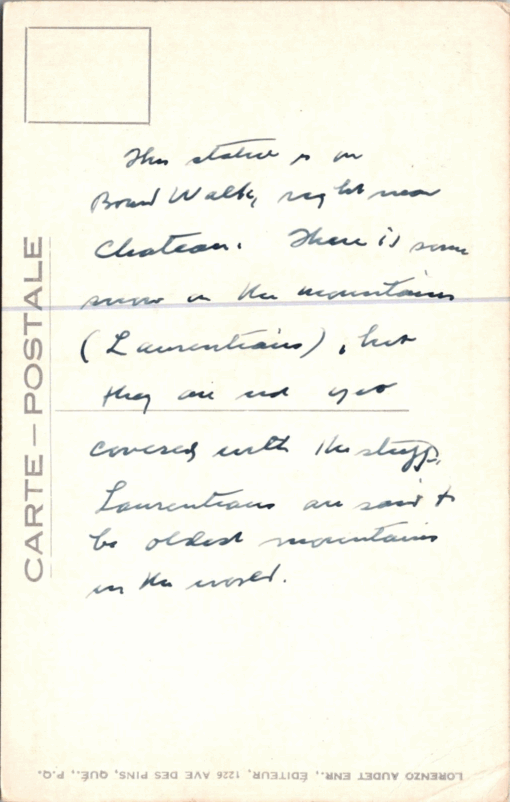 This statue is on
Board Walk, right near
Chateau. There is some
snow on the mountains
(Laurentians), but
they are not yet
covered with the stuff.
Laurentians are said to
be oldest mountains
in the world.
CARTE – POSTALE
LORENZO AUDET ENR., ÉDITEUR, 1226 AVE DES PINS, QUÉ., P.Q.